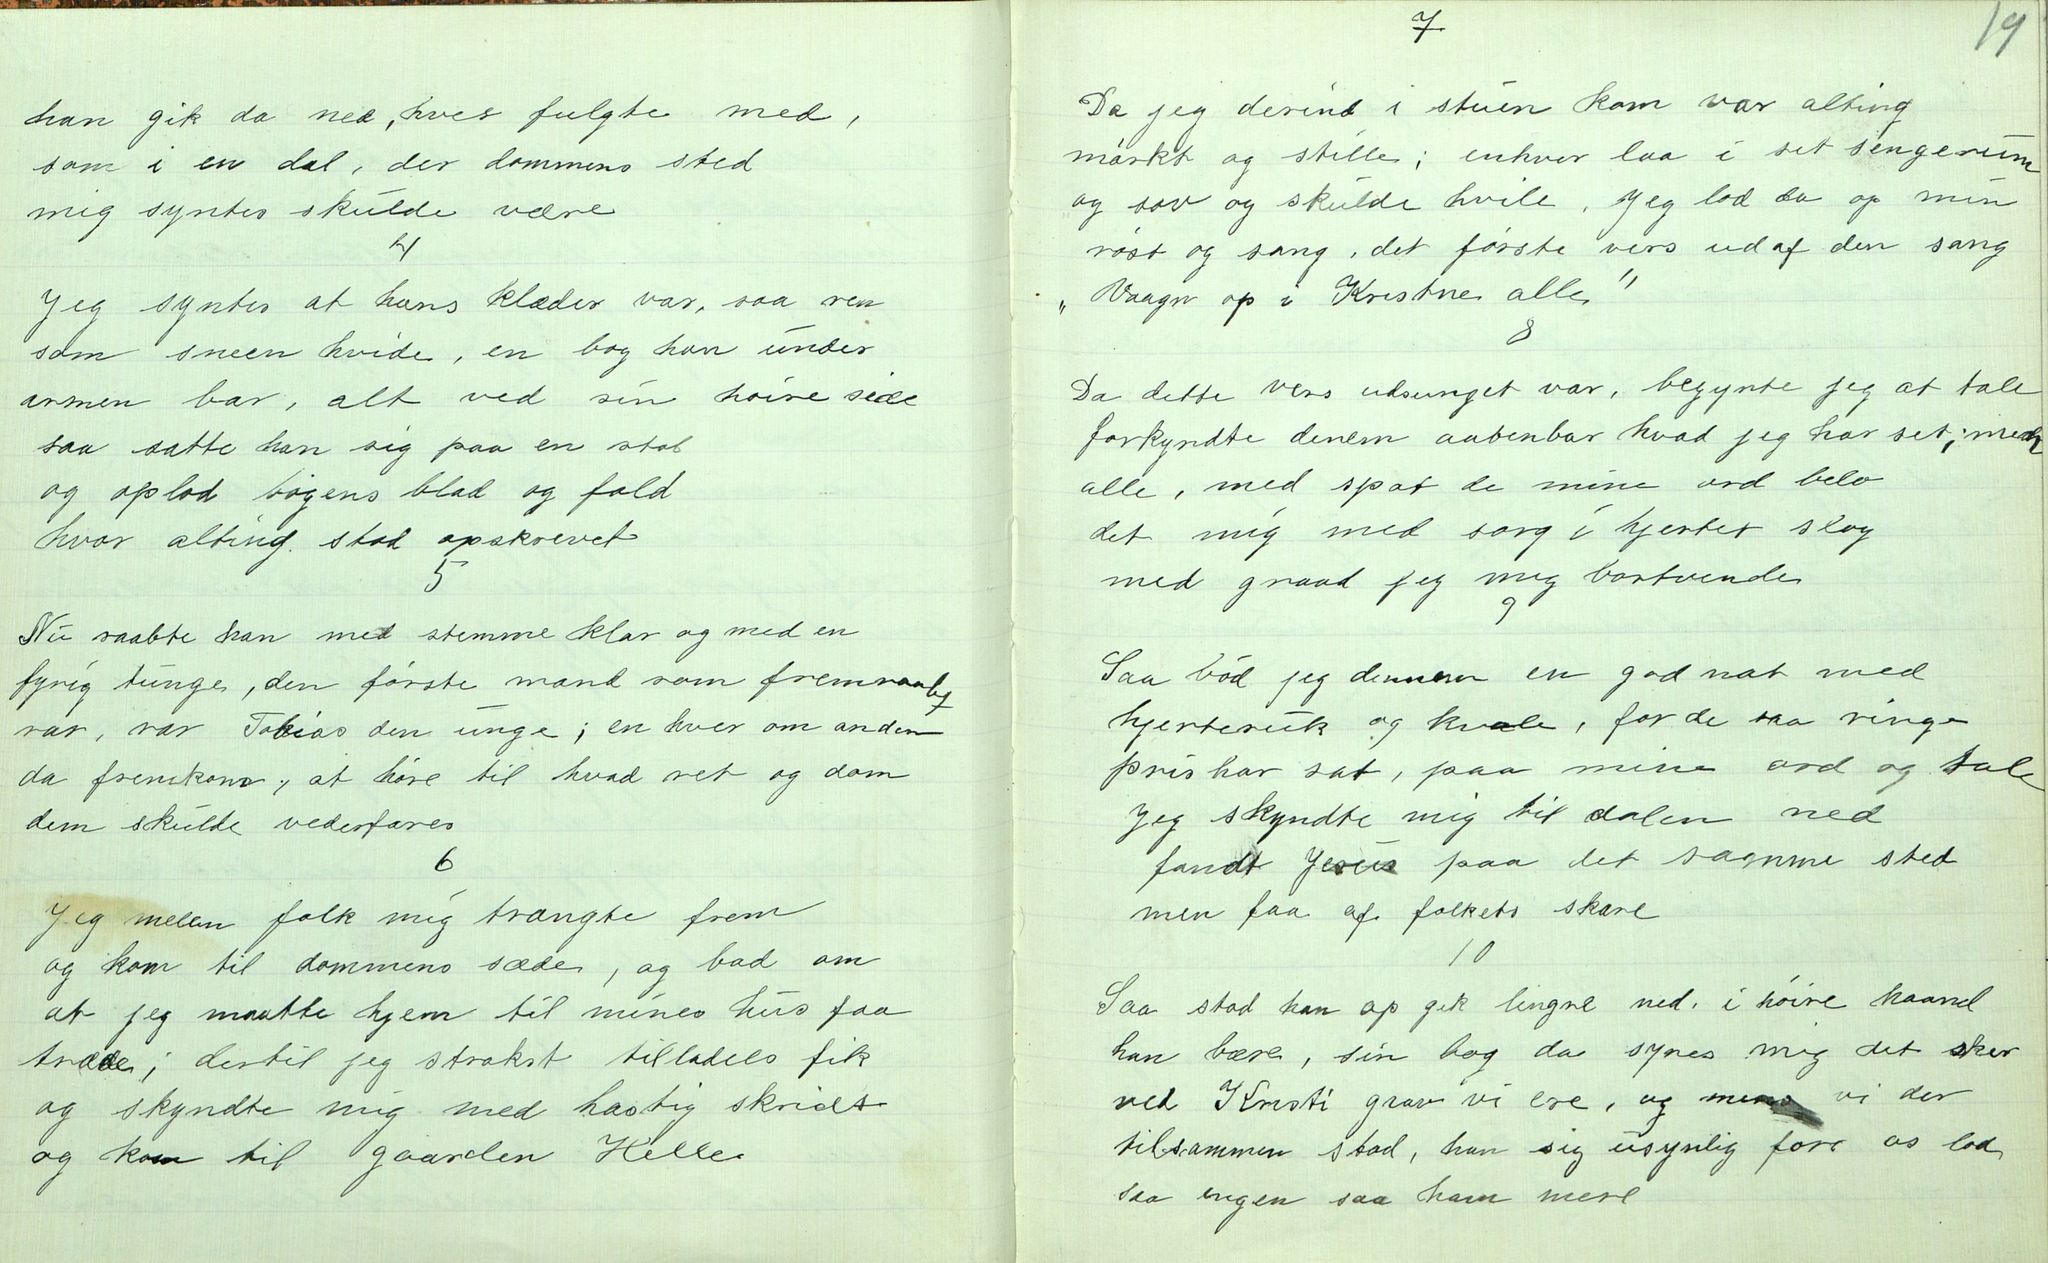 han gik da ned, hver fulgte med,
som i en dal, der dommens sted
mig syntes skulde være
4
Jeg syntes at hans klæder var, saa ren
som sneen hvide, en bog han under
armen bar, alt ved sin høire side
saa satte han sig paa en stol
og oplod bogens blad og fold
hvor alting stod opskrevet
5
Nu raabte han med stemme klar og med en
fyrig tunge, den første mand som fremraabt
var, var Tobias den unge; en hver om anden
da fremkom, at høre til hvad ret og dom
dem skulde vederfares
6
Jeg mellem folk mig trængte frem
og kom til dommens sæde, og bad om
at jeg maatte hjem til mines hus faa
træde; dertil jeg strakst tilladels fik
og skyndte mig med hastig skridt
og kom til gaarden Helle
7
19
Da jeg derind i stuen kom var alting
mørkt og stille; enhver laa i set sengerum
og sov og skulde hvile. Jeg lod da op min
røst og sang, det første vers ud af den sang
„Vaagn op i Kristne alle"
8
Da dette vers udsunget var, begynte jeg at tale
forkyndte denem aabenbar hvad jeg har set, men
alle, med spot de mine ord belo
det mig med sorg i hjertet slog
med graad jeg mig bortvende
9
Saa bød jeg dennem en god nat med
hjerteruk og kvale, for de saa ringe
pris har sat, paa mine ord og tale
Jeg skyndte mig til dalen ned
fandt Jesus paa det sagnme sted
men faa af folkets skare
10
Saa stod han op gik lingre ned, i høire haand
han bære, sin bog da synes mig det sker
ved Kristi grav vi ere, og mens vi der
tilsammen stod, han sig usynlig fore os lod
saa ingen saa ham mere